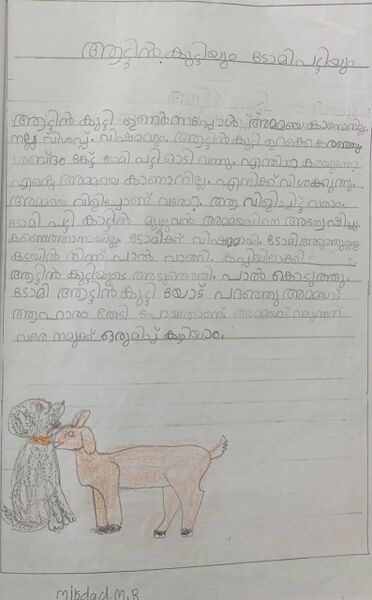 ആട്ടിൻ കുട്ടിയും ടോമി പട്ടിയും
ആട്ടിൻ കുട്ടി ഉണർന്നപ്പോൾ അമ്മയെ കാണാനില്ല.
നല്ല വിശപ്പ്. വിഷമവും. ആട്ടിൻ കുട്ടി ഉറക്കെ കരഞ്ഞു.
ശബ്ദം കേട്ട് ടോമി പട്ടി ഓടി വന്നു. എന്തിനാ കരയുന്നേ.
എന്റെ അമ്മയെ കാണാനില്ല. എനിക്ക് വിശക്കുന്നു.
അമ്മയെ വിളിച്ചോണ്ട് വരാമോ. ആ വിളിച്ചിട്ട് വരാം.
ടോമി പട്ടി കാട്ടിൽ മുഴുവൻ അമ്മയാടിനെ അന്വേഷിച്ചു.
കണ്ടെത്താനായില്ല. ടോമിക്ക് വിഷമമായി. ടോമി അടുത്തുള്ള
കടയിൽ നിന്ന് പാൽ വാങ്ങി. കുപ്പിയിലാക്കി
ആട്ടിൻ കുട്ടിയുടെ അടുത്തെത്തി. പാൽ കൊടുത്തു.
ടോമി ആട്ടിൻ കുട്ടി യോട് പറഞ്ഞു അമ്മയാട്
ആഹാരം തേടി പോയതാണ്. അമ്മയാട് വരുന്നത്
വരെ നമുക്ക് ഒരുമിച്ച് കഴിയാം.